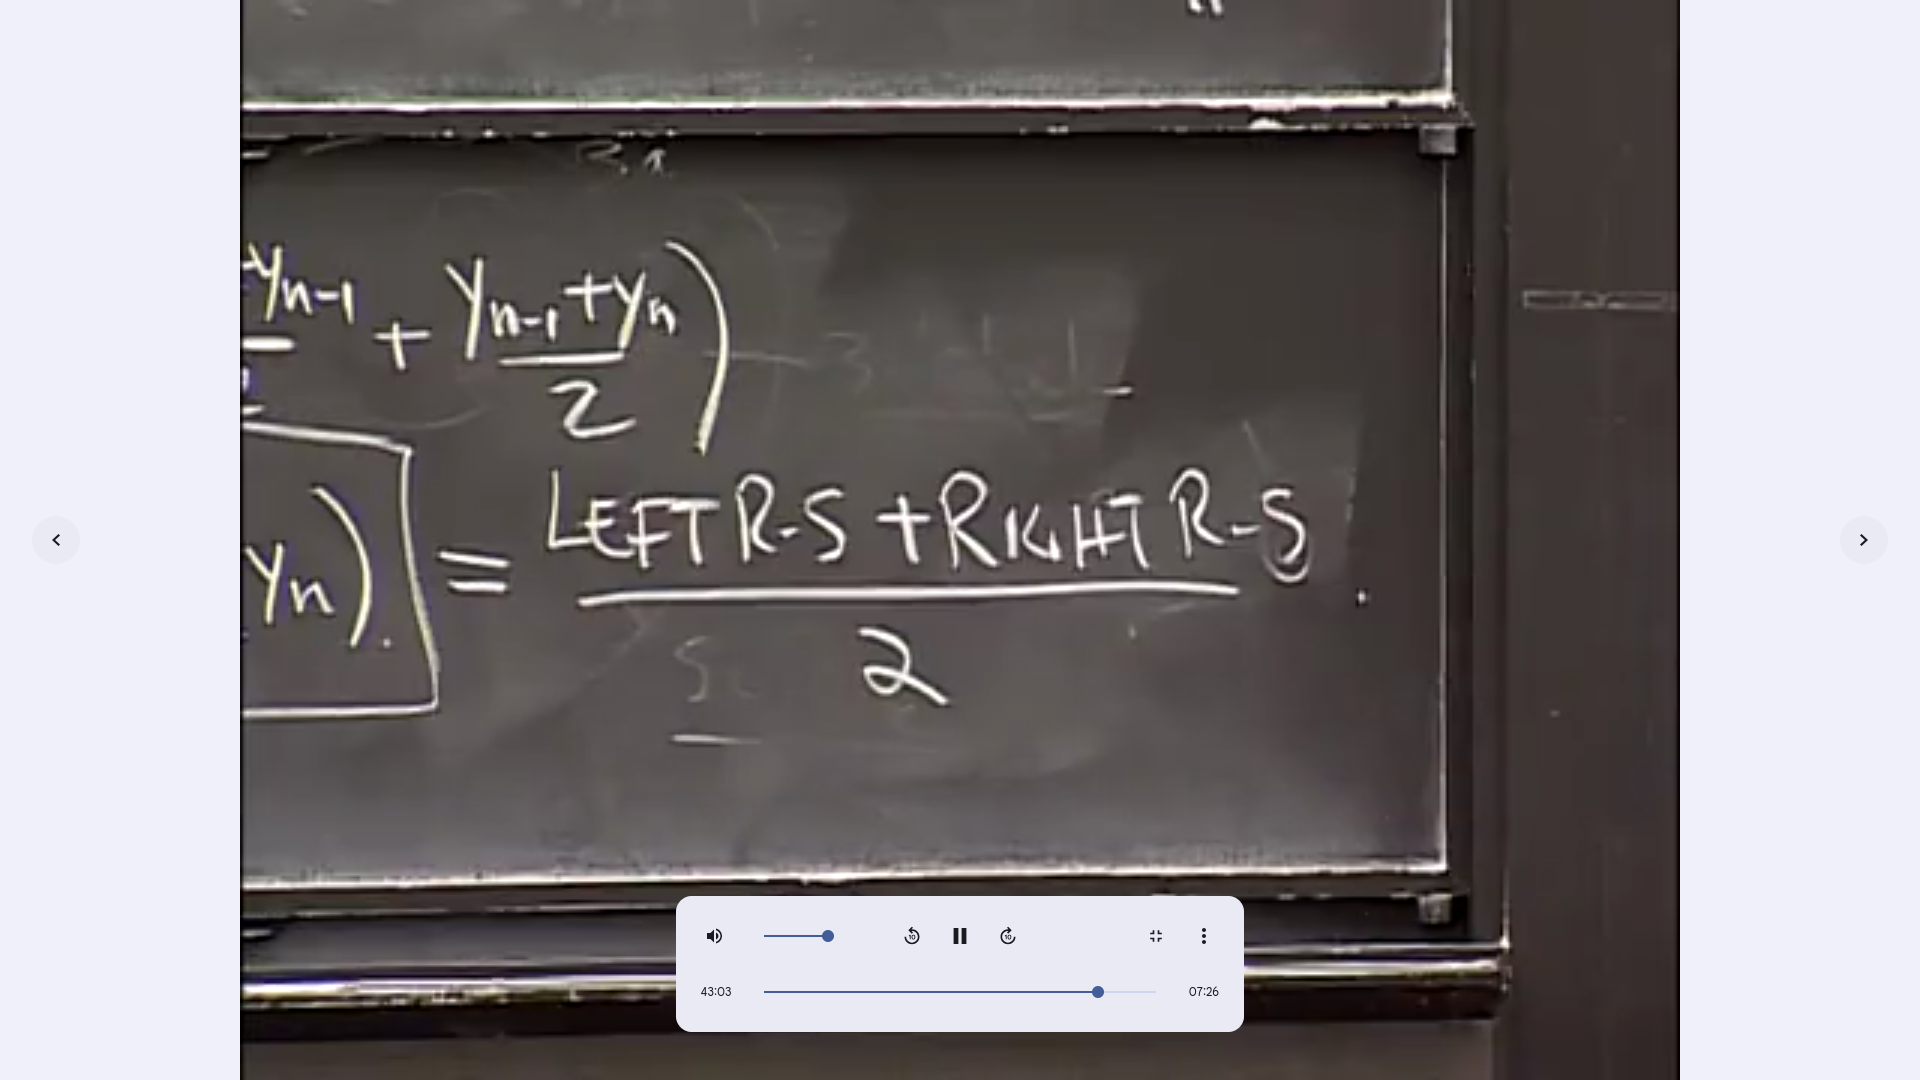 yn-1 + yn-1 + yn )
2
yn). = LEFT R-S + RIGHT R-S
2
43:03 07:26